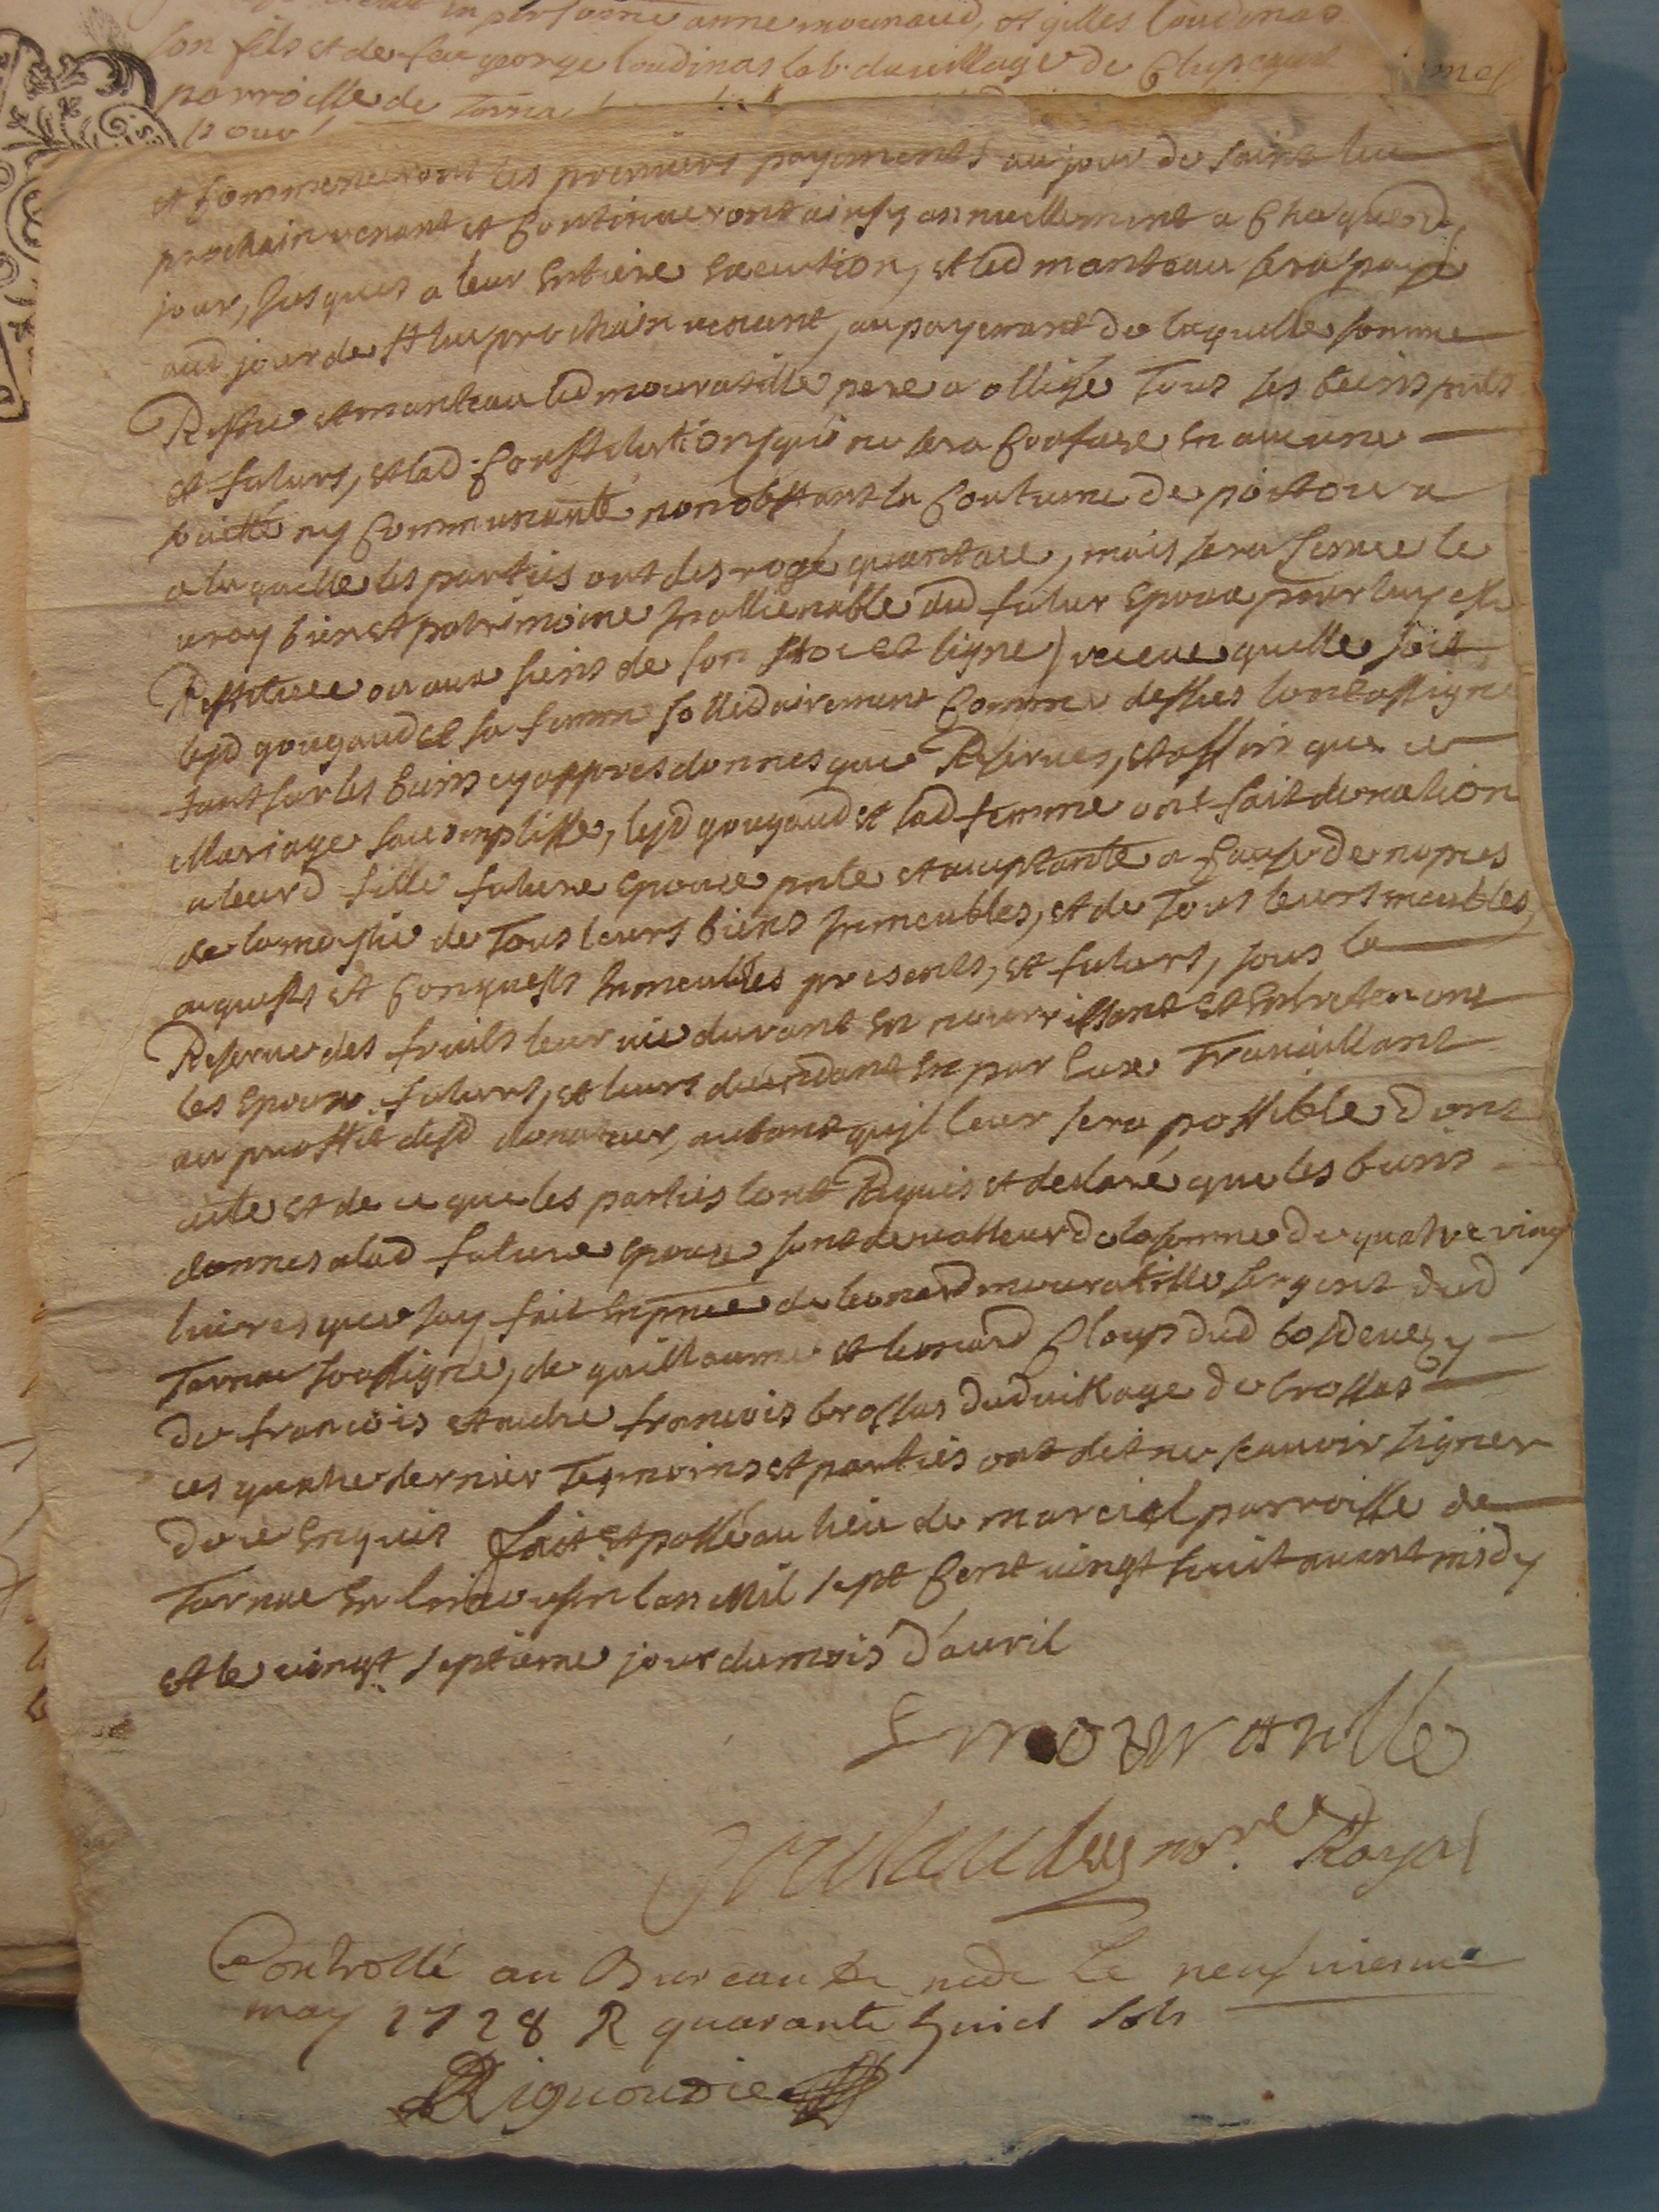 en personne anne mounaud, et gilles loudinas
son fils et de feu george loudinas lab. du village de
parroisse de Tarna
pour
et Commenceront les premiers payements au jour de saint luc
prochain venant et Continueront ainsy annuellement a Chaque d
jour, Jusques a leur Entiere Execution, et led manteau sera payé
aud jour de st luc prochain venant, au payement de laquelle somme
Restu et manteau led mouratille pere a obligé Tous ses biens pnts
et futurs, et lad Constitution qui ne sera Confuse En aucune
societté ny Communauté nonobstant la Coutume de poitou a
a laquelle les parties ont desrogé quant a ce, mais sera Censee le
vray bien et patrimoine Inallienable dud futur Epoux pour luy estre
Restituee ou aux siens de son Estoc et ligne) receue quelle soit
lesd gougaud et sa femme sollidairement Comme dessus lont assigne
tant sur les biens cy appres donnes que Reserves, et affin que ce
Mariage saccomplisse, lesd gougaud et lad femme ont fait donation
a leurd fille future Epouse pnte et acceptante a Cause de nopces
de la moistie de Tous leurs biens Immeubles, et de Tous leurs meubles,
acquests et Conquests Immeubles presents, et futurs, sous la
Reserve des fruits leur vie durant En nourrissant et Entretenant
les Epoux futurs, et leurs dessendant En par Eux Travaillant
au proffit desd donateur, autant quil leur sera possible dont
acte et de ce que les parties lont Requis et declaré que les biens
donnes a lad future Epouse sont de valleur de la somme de quatre vingt
livres que Jay fait En pnce de leonard mouratille sergent dud
Tarnac soussigné, de guillaume et leonard Cloups dud bosdevezy
de francois et autre francois brossas dud village de brossas
ces quatre dernier Tesmoins et parties ont dit ne scavoir signer
de ce Enquis fait et passé au lieu de marcial parroisse de
Tarnac En limousin lan Mil sept Cent vingt huit avant midy
et le vingt septieme jour du mois d'avril
mouratille
nore Royal
Controllé au Bureau de le neufviesme
may 1728 R quarante huict sols
Rignoudie